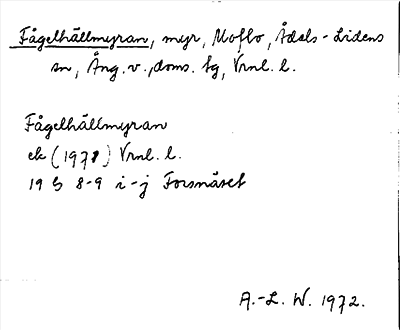 Fågelhällmyran, myr, Moflo, Ådals-Lidens
sn, Ång. v., doms. lg, Vrnl. l.
Fågelhällmyran
ek (1971) Vrnl. l.
19 G 8-9 i-j Forsnäset
A.-L. W. 1972.